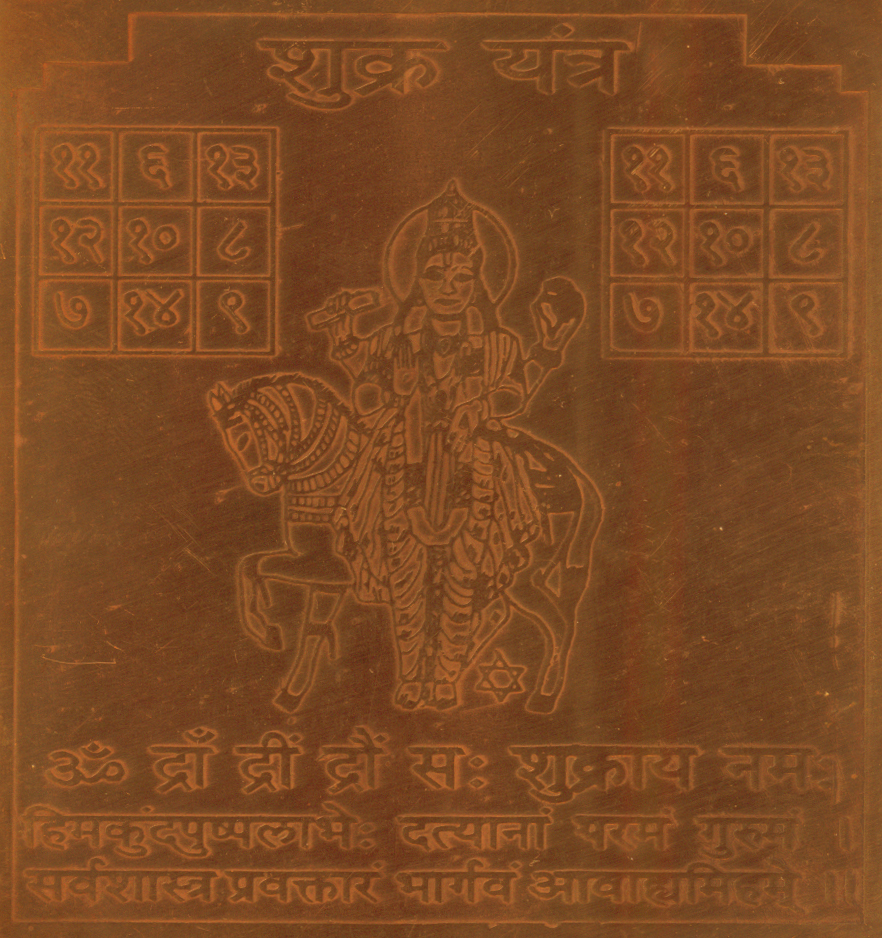 शुक्र यंत्र
११ ६ १३
१२ १० ८
७ १४ ९
११ ६ १३
१२ १० ८
७ १४ ९
ॐ द्राँ द्रीं द्रौं सः शुक्राय नमः
हिमकुंदपुष्पलाभेः दत्यानां परमं गुरुमं ।
सर्वशास्त्र प्रवक्तारं भार्गवं आवाह्यमिहमे ॥